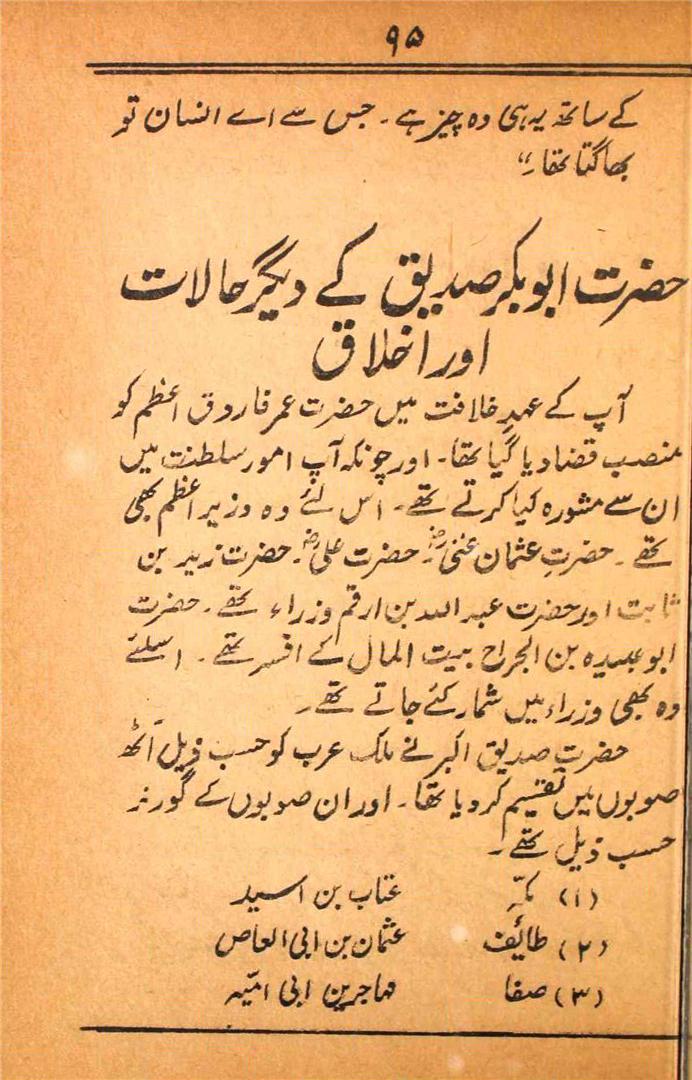 ۹۵
کے ساتھ یہ ہی وہ چیز ہے۔ جس سے اے انسان تو
بھاگتا تھا۔“
حضرت ابوبکر صدیق کے دیگر حالات
اور اخلاق
آپ کے عہدِ خلافت میں حضرت عمر فاروق اعظم کو
منصب قضا دیا گیا تھا۔ اور چونکہ آپ امور سلطنت میں
ان سے مشورہ کیا کرتے تھے۔ اس لئے وہ وزیر اعظم بھی
تھے۔ حضرتِ عثمان غنیؓ۔ حضرت علیؓ۔ حضرت زید بن
ثابت اور حضرت عبد اللہ بن ارقم وزراء تھے۔ حضرت
ابو عبیدہ بن الجراح بیت المال کے افسر تھے۔ اسلئے
وہ بھی وزراء میں شمار کئے جاتے تھے۔
حضرتِ صدیق اکبر نے ملک عرب کو حسب ذیل آٹھ
صوبوں میں تقسیم کر دیا تھا۔ اور ان صوبوں کے گورنر
حسب ذیل تھے۔
(۱) مکّہ عتاب بن اسید
(۲) طائف عثمان بن ابی العاص
(۳) صفا مہاجر بن ابی امیّہ